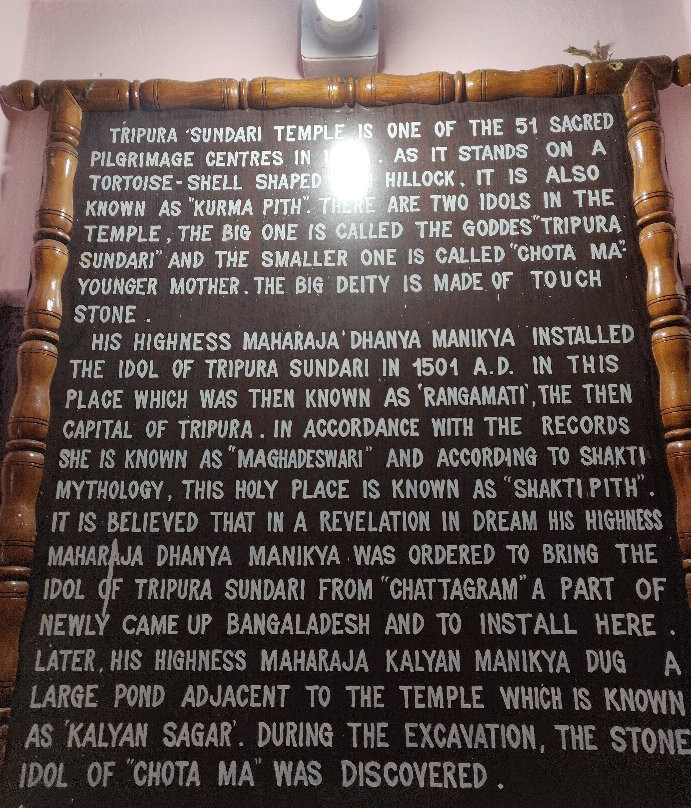 TRIPURA 'SUNDARI TEMPLE IS ONE OF THE 51 SACRED
PILGRIMAGE CENTRES IN . AS IT STANDS ON A
TORTOISE-SHELL SHAPED HILLOCK, IT IS ALSO
KNOWN AS "KURMA PITH". THERE ARE TWO IDOLS IN THE
TEMPLE, THE BIG ONE IS CALLED THE GODDES "TRIPURA
SUNDARI" AND THE SMALLER ONE IS CALLED "CHOTA MA"-
YOUNGER MOTHER. THE BIG DEITY IS MADE OF TOUCH
STONE .
HIS HIGHNESS MAHARAJA 'DHANYA MANIKYA INSTALLED
THE IDOL OF TRIPURA SUNDARI IN 1501 A.D. IN THIS
PLACE WHICH WAS THEN KNOWN AS 'RANGAMATI', THE THEN
CAPITAL OF TRIPURA . IN ACCORDANCE WITH THE RECORDS
SHE IS KNOWN AS "MAGHADESWARI" AND ACCORDING TO SHAKTI
MYTHOLOGY, THIS HOLY PLACE IS KNOWN AS "SHAKTI PITH".
IT IS BELIEVED THAT IN A REVELATION IN DREAM HIS HIGHNESS
MAHARAJA DHANYA MANIKYA WAS ORDERED TO BRING THE
IDOL OF TRIPURA SUNDARI FROM "CHATTAGRAM" A PART OF
NEWLY CAME UP BANGALADESH AND TO INSTALL HERE .
LATER, HIS HIGHNESS MAHARAJA KALYAN MANIKYA DUG A
LARGE POND ADJACENT TO THE TEMPLE WHICH IS KNOWN
AS 'KALYAN SAGAR'. DURING THE EXCAVATION, THE STONE
IDOL OF "CHOTA MA" WAS DISCOVERED .